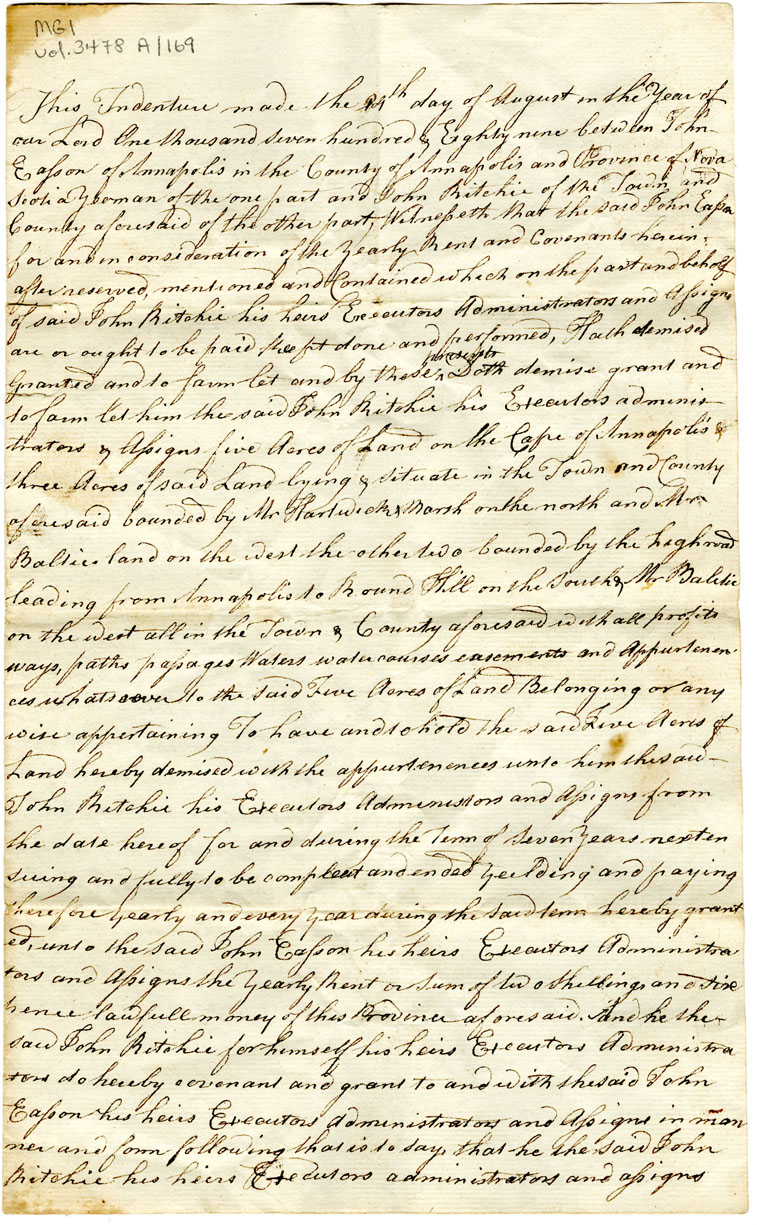 MG1
vol. 3478 A/169
This Indenture made the 24th day of August in the Year of
our Lord One thousand seven hundred & Eighty nine between John
Easson of Annapolis in the County of Annapolis and Province of Nova
Scotia Yeoman of the one part and John Ritchie of the Town and
County aforesaid of the other part, Witnesseth that the said John Easson
for and in consideration of the Yearly Rent and Covenants herein-
after reserved, mentioned and Contained which on the part and behalf
of said John Ritchie his heirs Executors Administrators and Assigns
are or ought to be paid kept done and performed, Hath demised
presents
Granted and to farm let and by these ^ Doth demise grant and
to farm let him the said John Ritchie his Executors adminis-
trators & Assigns five Acres of Land on the Cape of Annapolis &
three Acres of said Land lying & situate in the Town and County
aforesaid bounded by Mr Hartwick & Marsh on the north and Mr
Baltic land on the west the other two bounded by the high road
leading from Annapolis to Round Hill on the South & Mr Baltic
on the west all in the Town & County aforesaid with all profits
ways, paths passages Waters watercourses easements and Appurtenen-
ces whatsoever to the said Five Acres of Land Belonging or any
wise appertaining To have and to hold the said Five Acres of
Land hereby demised with the appurtenences unto him the said-
John Ritchie his Executors Administors and Assigns from
the date hereof for and during the Term of seven Years next en
suing and fully to be compleat and ended Yeilding and paying
therefore yearly and every Year during the said term hereby grant
ed, unto the said John Easson his heirs Executors Administra-
tors and Assigns the Yearly Rent or sum of two shillings and Five
pence lawfull money of this Province aforesaid. And he the-
said John Ritchie for himself his heirs Executors Administra
tors do hereby covenant and grant to and with the said John
Easson his heirs Executors administrators and Assigns in man
ner and form following that is to say, that he the said John
Ritchie his heirs Executors administrators and assigns